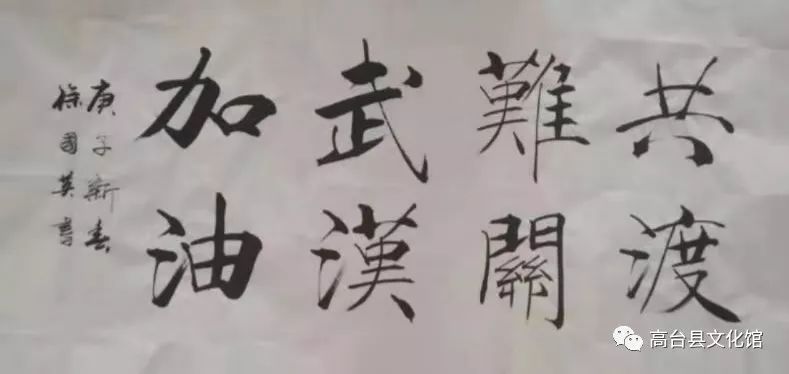 共渡
難關
武漢
加油
庚子新春
徐國英書
高台县文化馆